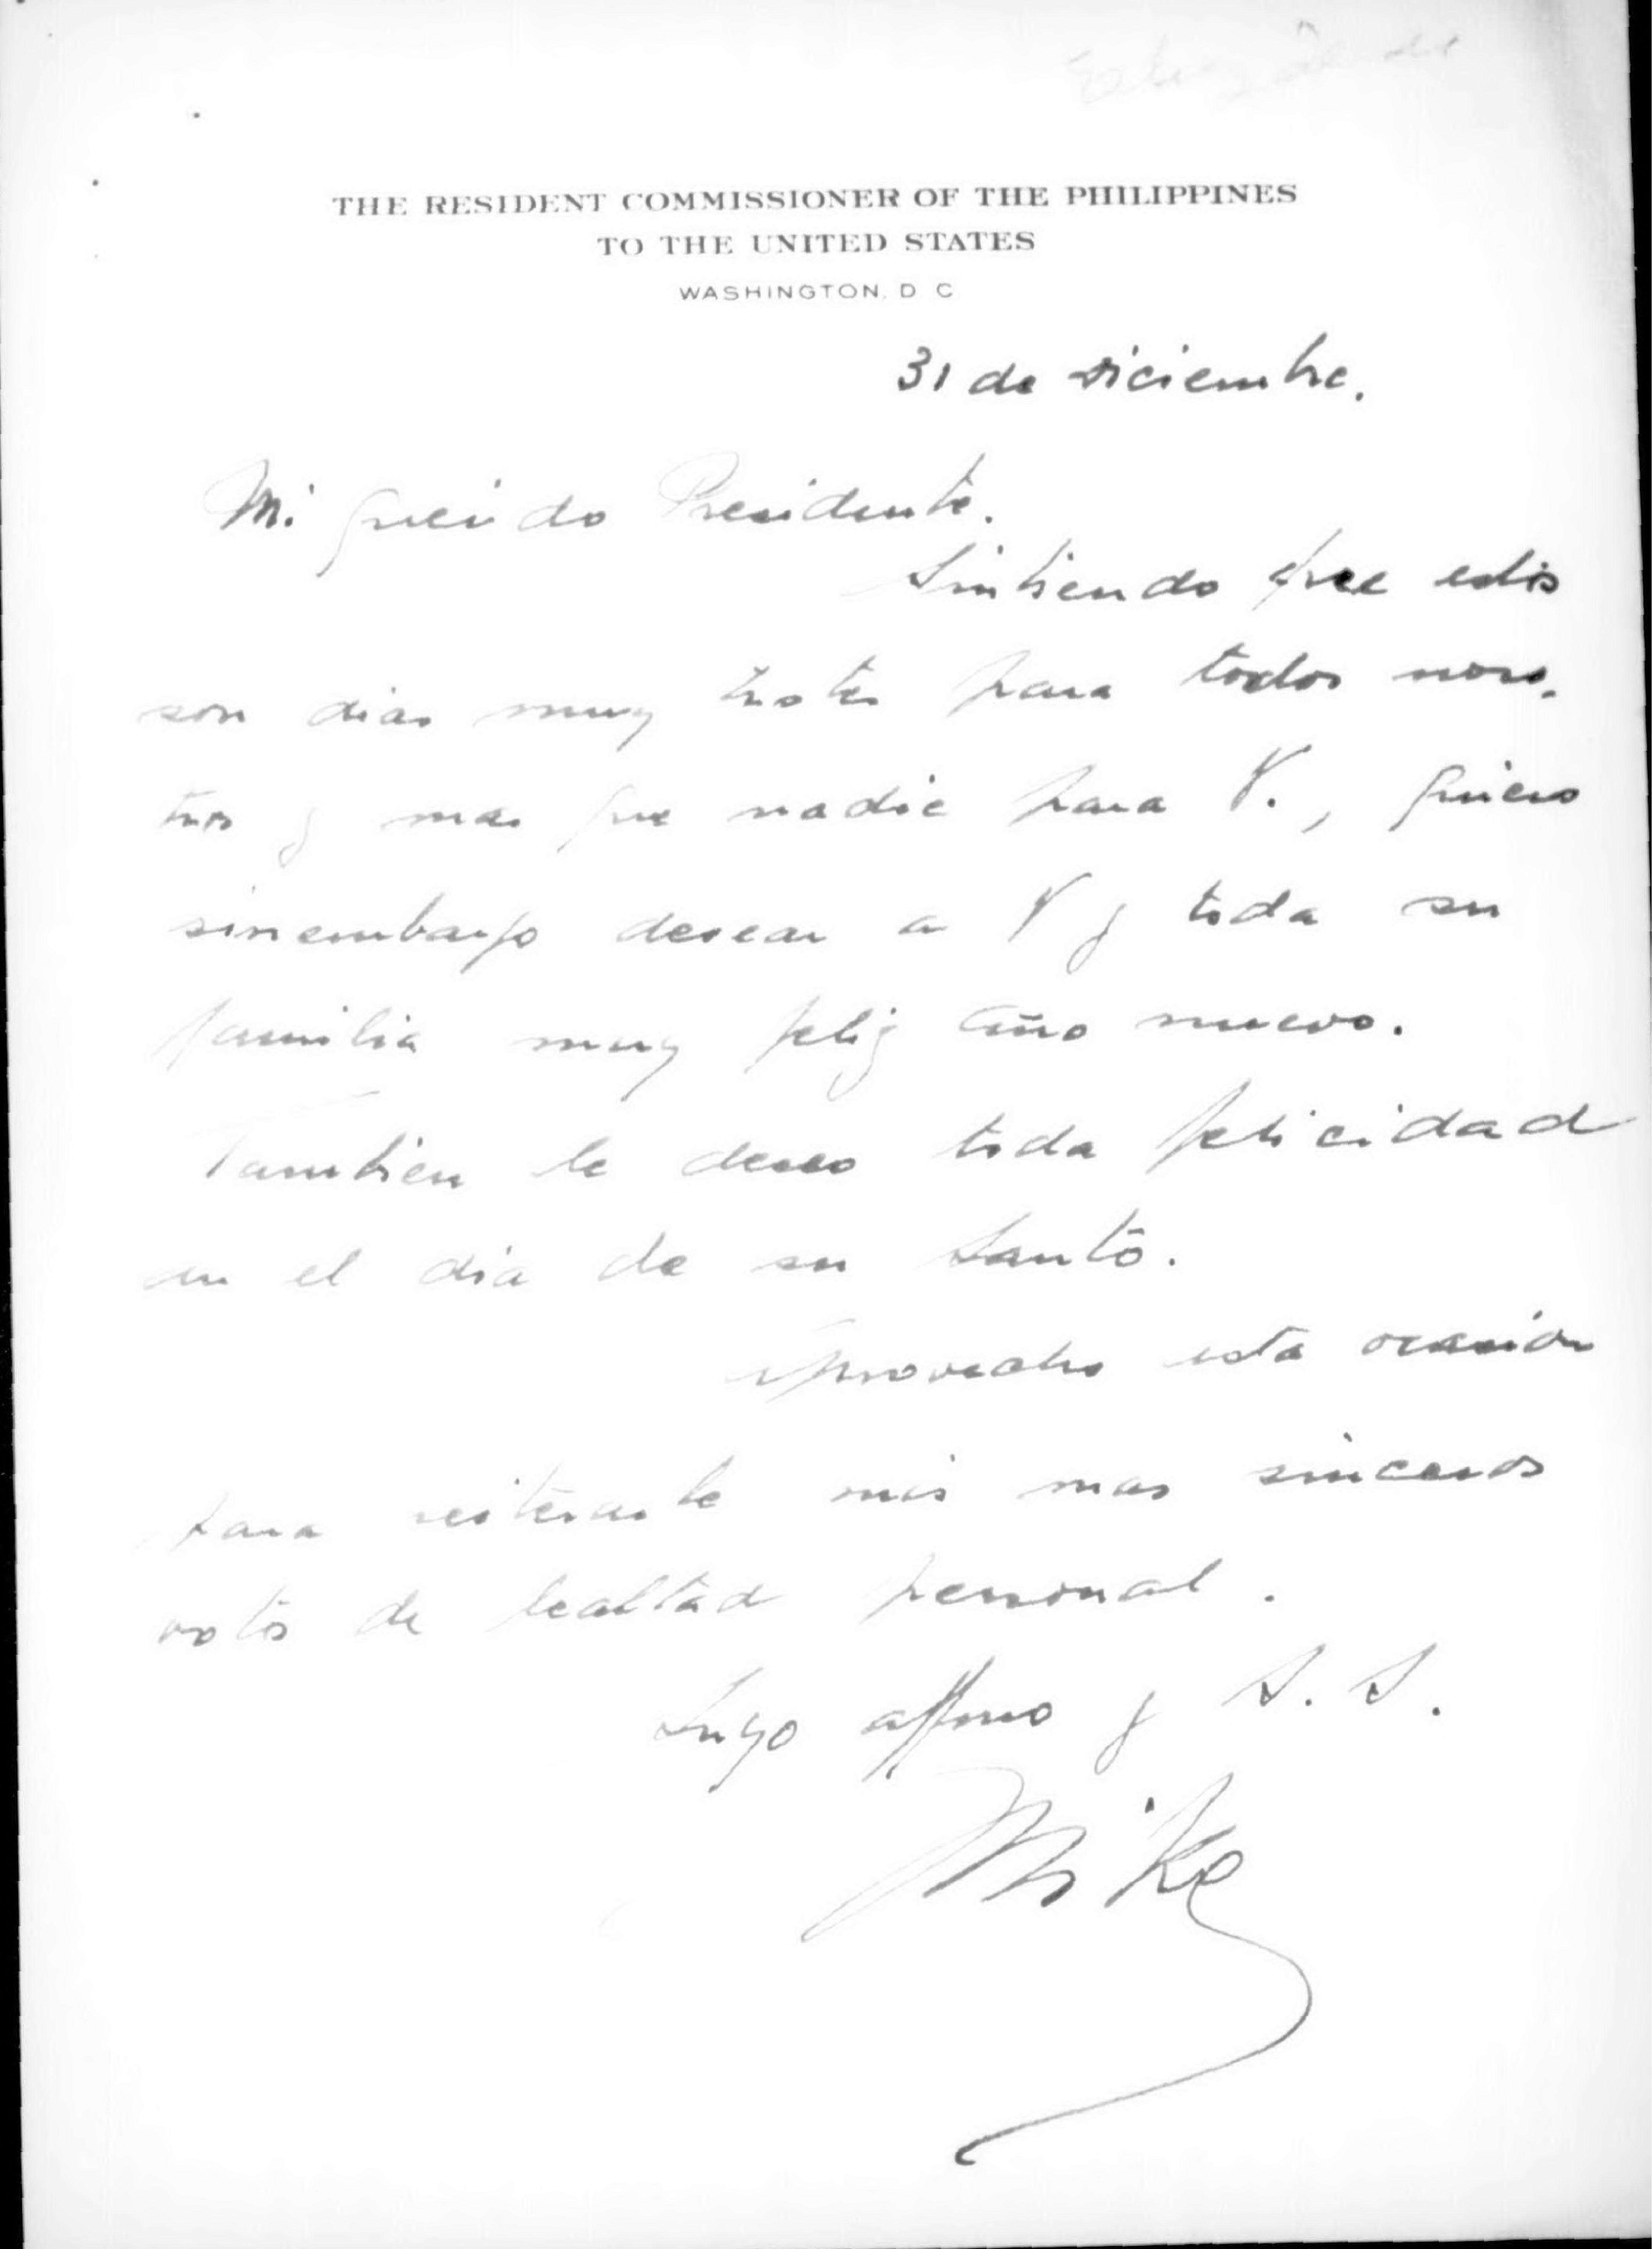 THE RESIDENT COMMISSIONER OF THE PHILIPPINES
TO THE UNITED STATES
WASHINGTON, D C
31 de diciembre.
Mi querido Presidente.
Sintiendo que estos
son dias muy tristes para todos noso-
tros y mas que nadie para V., quiero
sinembargo desear a V y toda su
familia muy feliz año nuevo.
Tambien le deseo toda felicidad
en el dia de su Santo.
Aprovecho esta ocasion
para reiterarle mis mas sinceros
votos de lealtad personal.
Suyo affmo y S. S.
Mike